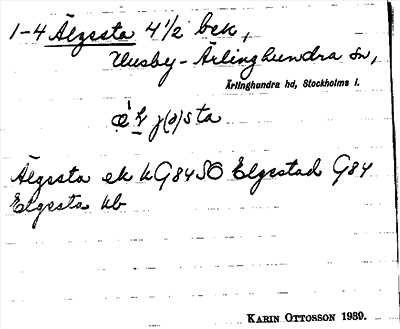 1-4 Älgesta 4 1/2 bek,
Husby-Ärlinghundra sn,
Ärlinghundra hd, Stockholms l.
j(ə)sta
Älgesta ek kG84SO Elgestad G84
Elgesta kb
KARIN OTTOSSON 1989.